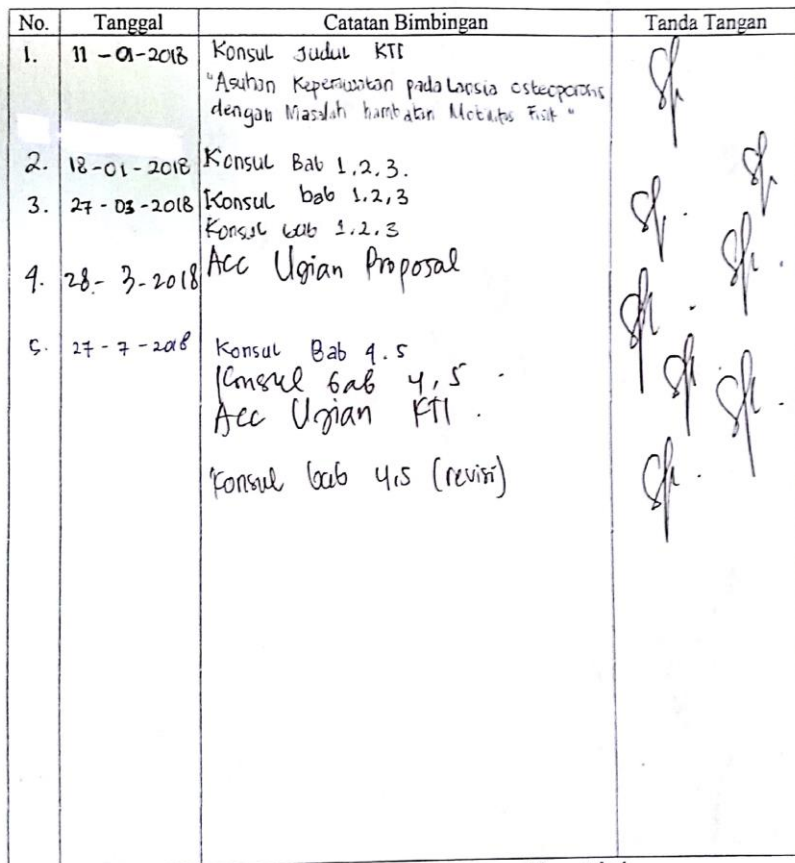 No. Tanggal Catatan Bimbingan Tanda Tangan
1. 11-01-2018 Konsul Judul KTI
"Asuhan Keperawatan pada Lansia osteoporosis
dengan Masalah hambatan Mobilitas Fisik"
2. 18-01-2018 Konsul Bab 1,2,3.
3. 27-03-2018 Konsul bab 1,2,3
Konsul bab 1,2,3
4. 28-3-2018 Acc Ujian Proposal
5. 27-7-2018 Konsul Bab 4.5
Konsul bab 4,5
Acc Ujian KTI.
Konsul bab 4,5 (revisi)